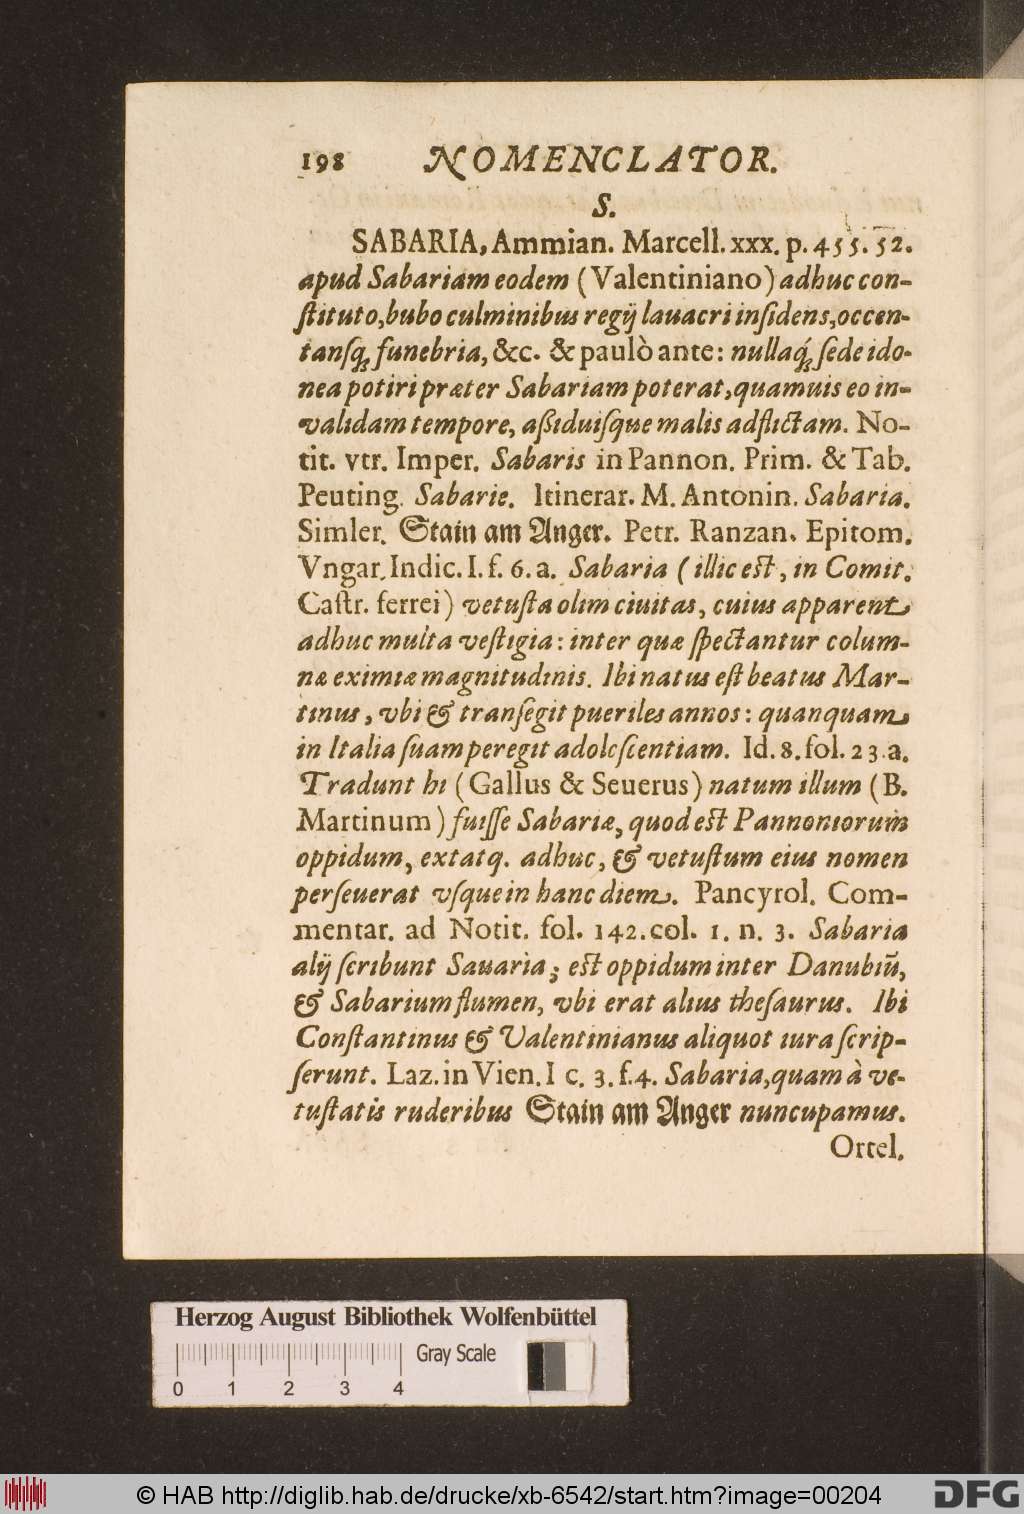 198 NOMENCLATOR.
S.
SABARIA, Ammian. Marcell. xxx. p. 455. 52.
apud Sabariam eodem (Valentiniano) adhuc con-
ſtituto, bubo culminibus regij lauacri inſidens, occen-
tanſq́; funebria, &c. & paulò ante: nullaq́; ſede ido-
nea potiri præter Sabariam poterat, quamuis eo in-
validam tempore, aßiduiſque malis adflictam. No-
tit. vtr. Imper. Sabaris in Pannon. Prim. & Tab.
Peuting. Sabarie. Itinerar. M. Antonin. Sabaria.
Simler. Stain am Anger. Petr. Ranzan. Epitom.
Vngar. Indic. I. f. 6. a. Sabaria (illic eſt, in Comit.
Caſtr. ferrei) vetuſta olim ciuitas, cuius apparent
adhuc multa veſtigia: inter quæ ſpectantur colum-
næ eximiæ magnitudinis. Ibi natus eſt beatus Mar-
tinus, vbi & tranſegit pueriles annos: quanquam
in Italia ſuam peregit adoleſcentiam. Id. 8. fol. 23. a.
Tradunt hi (Gallus & Seuerus) natum illum (B.
Martinum) fuiſſe Sabariæ, quod eſt Pannoniorum
oppidum, extatq. adhuc, & vetuſtum eius nomen
perſeuerat vſque in hanc diem. Pancyrol. Com-
mentar. ad Notit. fol. 142. col. 1. n. 3. Sabaria
alij ſcribunt Sauaria; eſt oppidum inter Danubiū,
& Sabarium flumen, vbi erat alius theſaurus. Ibi
Conſtantinus & Valentinianus aliquot iura ſcrip-
ſerunt. Laz. in Vien. I c. 3. f. 4. Sabaria, quam à ve-
tuſtatis ruderibus Stain am Anger nuncupamus.
Ortel.
Herzog August Bibliothek Wolfenbüttel
Gray Scale
0 1 2 3 4
© HAB http://diglib.hab.de/drucke/xb-6542/start.htm?image=00204
DFG